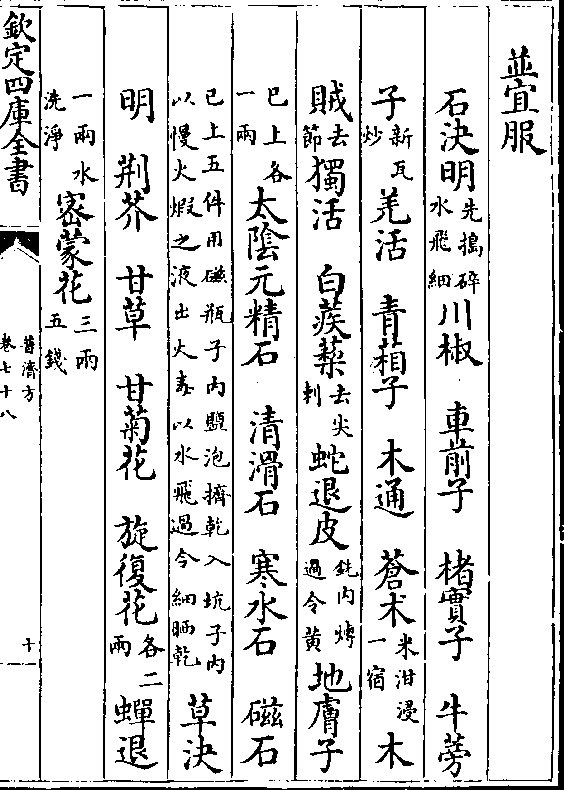 並宜服
石決明先搗碎水飛細川椒 車前子 楮實子 牛蒡
子新瓦炒羌活 青葙子 木通 蒼术米泔浸一宿 木
賊去節獨活 白蒺蔾去尖刺蛇退皮銚內烤過令黄地膚子
已上各一兩太陰元精石 清滑石 寒水石 磁石
已上五件用磁瓶子内鹽泡擠乾入坑子内以慢火煅之液出火毒以水飛過令細晒乾草決
明 荆芥 甘草 甘菊花 旋復花各二兩蟬退
一兩水洗淨密蒙花三兩五錢
欽定四庫全書
普濟方
卷七十八
十